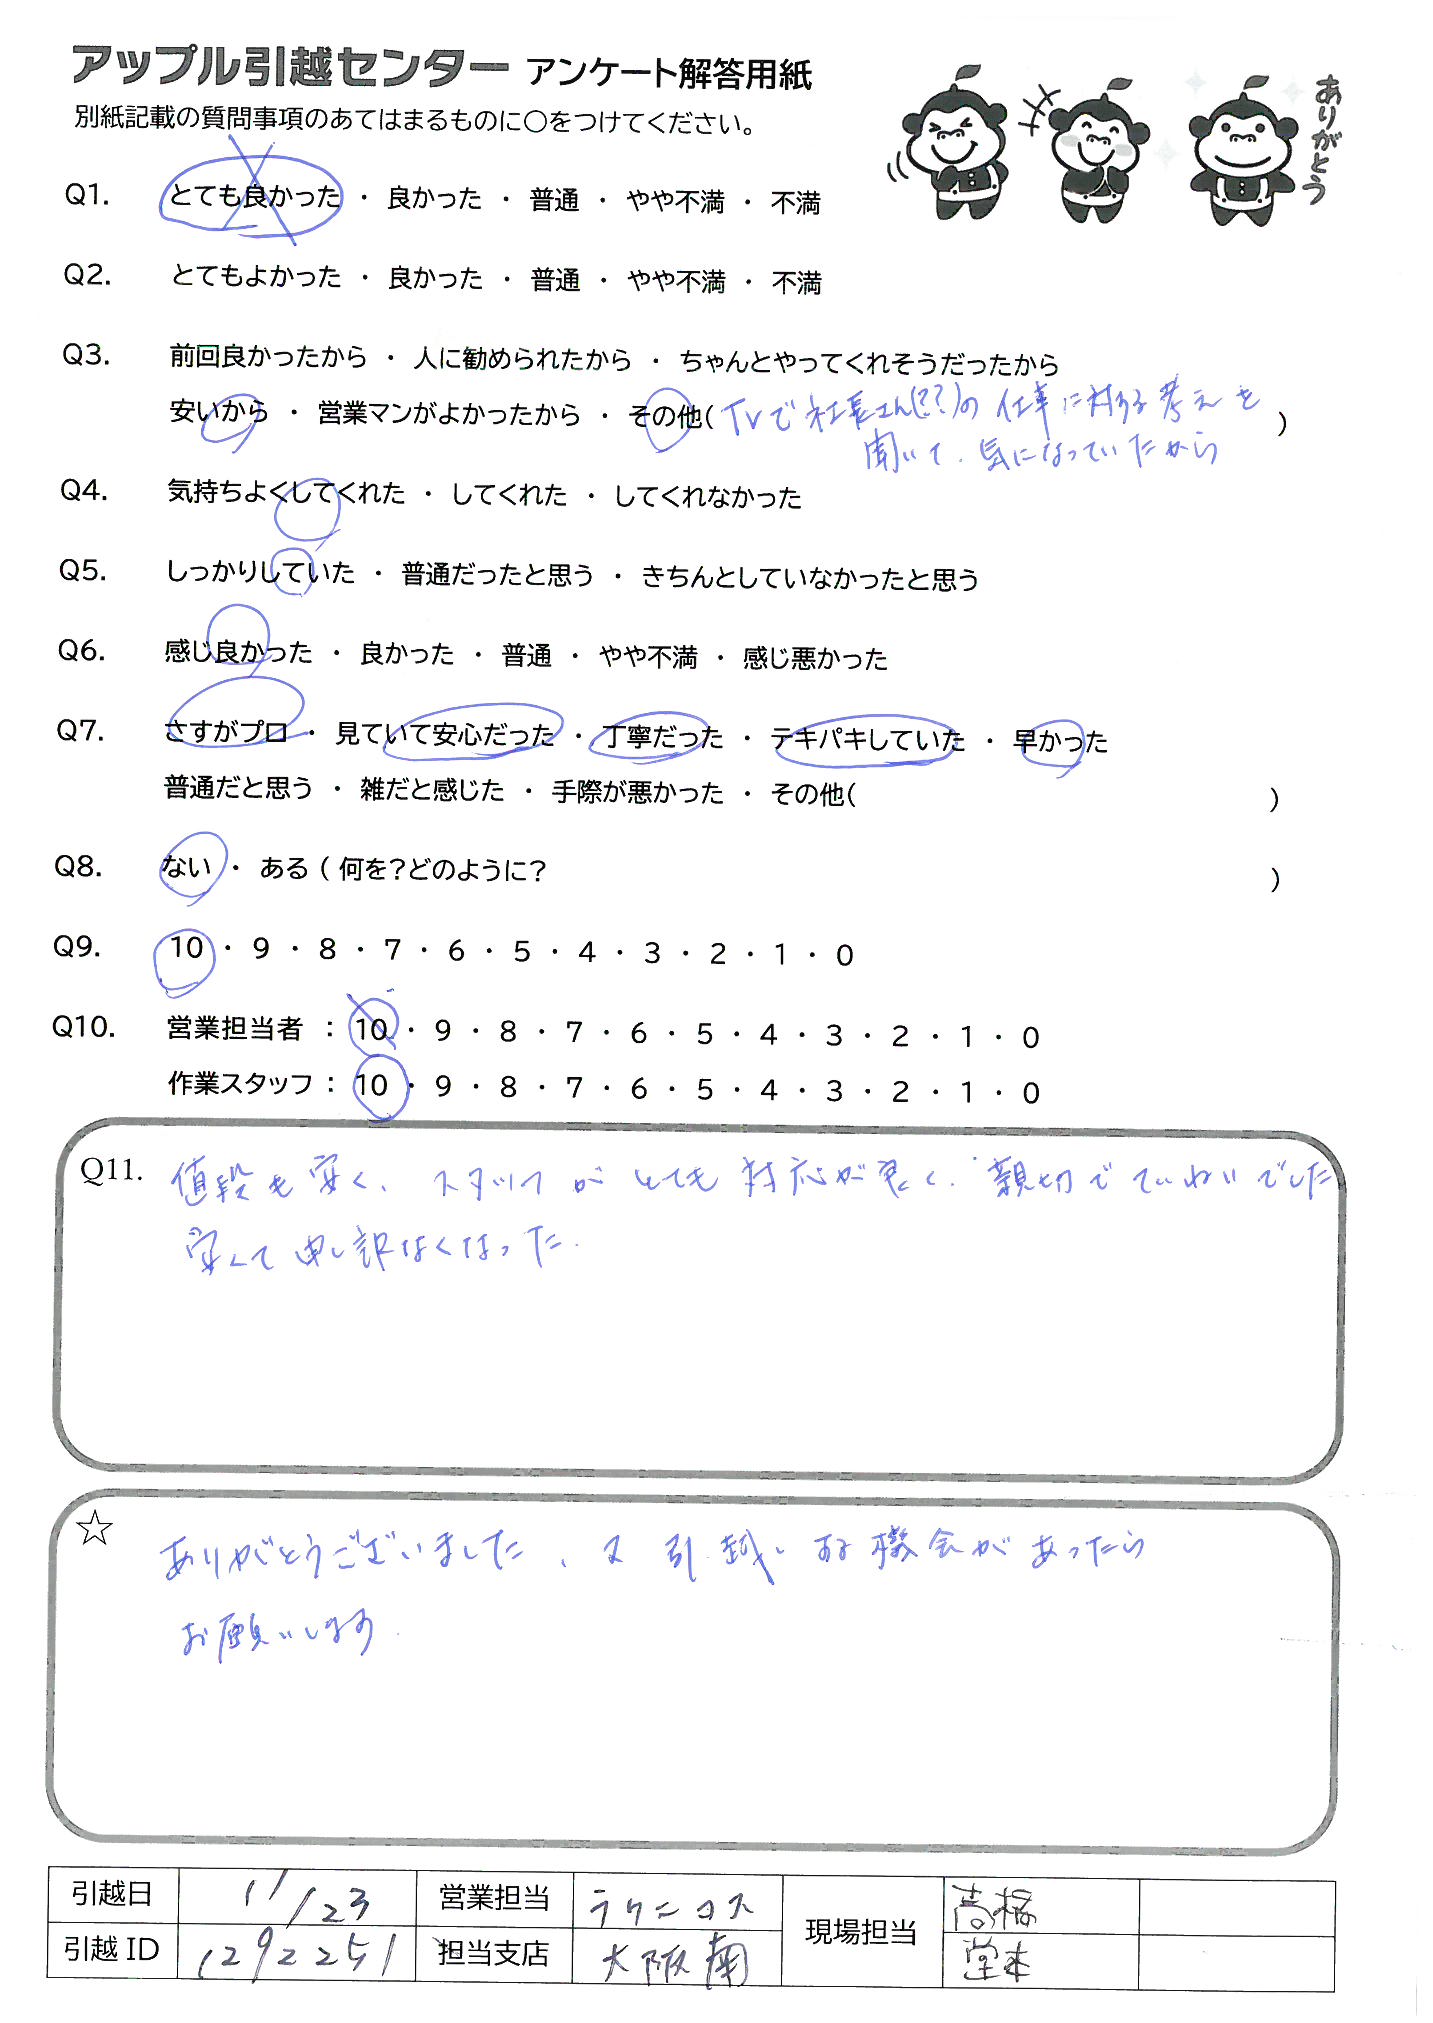 アップル引越センター アンケート解答用紙
別紙記載の質問事項のあてはまるものに○をつけてください。
ありがとう
Q1. とても良かった ・ 良かった ・ 普通 ・ やや不満 ・ 不満
Q2. とてもよかった ・ 良かった ・ 普通 ・ やや不満 ・ 不満
Q3. 前回良かったから ・ 人に勧められたから ・ ちゃんとやってくれそうだったから
安いから ・ 営業マンがよかったから ・ その他( TVで社長さん(??)の仕事に対する考えを )
聞いて、気になっていたから
Q4. 気持ちよくしてくれた ・ してくれた ・ してくれなかった
Q5. しっかりしていた ・ 普通だったと思う ・ きちんとしていなかったと思う
Q6. 感じ良かった ・ 良かった ・ 普通 ・ やや不満 ・ 感じ悪かった
Q7. さすがプロ ・ 見ていて安心だった ・ 丁寧だった ・ テキパキしていた ・ 早かった
普通だと思う ・ 雑だと感じた ・ 手際が悪かった ・ その他( )
Q8. ない ・ ある ( 何を?どのように? )
Q9. 10 ・ 9 ・ 8 ・ 7 ・ 6 ・ 5 ・ 4 ・ 3 ・ 2 ・ 1 ・ 0
Q10. 営業担当者 : 10 ・ 9 ・ 8 ・ 7 ・ 6 ・ 5 ・ 4 ・ 3 ・ 2 ・ 1 ・ 0
作業スタッフ : 10 ・ 9 ・ 8 ・ 7 ・ 6 ・ 5 ・ 4 ・ 3 ・ 2 ・ 1 ・ 0
Q11. 値段も安く、スタッフがとても対応が良く、親切でていねいでした
安くて申し訳なくなった.
☆ ありがとうございました、又引越しする機会があったら
お願いします.
引越日 11/23 営業担当 ラクニコス 現場担当 高橋
引越 ID 1292251 担当支店 大阪南 堂本